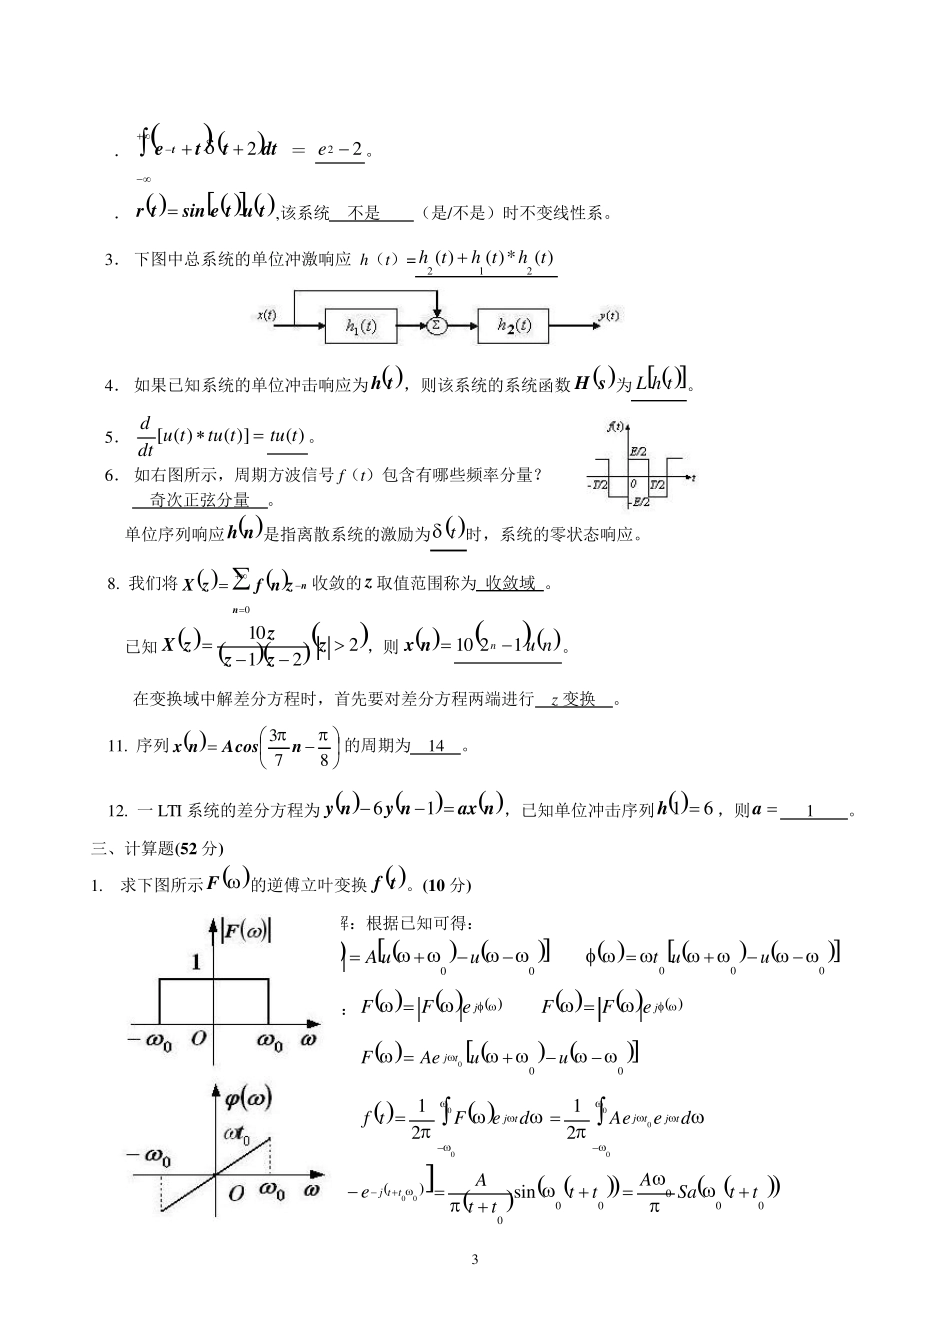 ． ∫_{-∞}^{+∞}(e^{-t}+t)δ(t+2)dt = e²-2。
． r(t)=sin[e(t)]u(t),该系统 不是 （是/不是）时不变线性系。
3． 下图中总系统的单位冲激响应 h（t）=h₂(t)+h₁(t)*h₂(t)
x(t) h₁(t) Σ h₂(t) y(t)
4． 如果已知系统的单位冲击响应为h(t)，则该系统的系统函数 H(s)为L[h(t)]。
5． d/dt[u(t)*tu(t)]=tu(t)。
f(t)
E/2
6． 如右图所示，周期方波信号 f（t）包含有哪些频率分量？
-T/2 0 T/2 t
奇次正弦分量 。
-E/2
单位序列响应h(n)是指离散系统的激励为δ(t)时，系统的零状态响应。
8. 我们将 X(z)=∑_{n=0}^{∞} f(n)z^{-n} 收敛的 z 取值范围称为 收敛域 。
已知 X(z)=10z/((z-1)(z-2)) (|z|>2)，则 x(n)=10(2ⁿ-1)u(n)。
在变换域中解差分方程时，首先要对差分方程两端进行 z 变换 。
11. 序列 x(n)=Acos(3π/7 n-π/8) 的周期为 14 。
12. 一 LTI 系统的差分方程为 y(n)-6y(n-1)=ax(n)，已知单位冲击序列h(1)=6，则a= 1 。
三、计算题(52 分)
1. 求下图所示 F(ω)的逆傅立叶变换 f(t)。(10 分)
解：根据已知可得：
|F(ω)|
1
-ω₀ O ω₀ ω
)=A[u(ω+ω₀)-u(ω-ω₀)] φ(ω)=ωt₀[u(ω+ω₀)-u(ω-ω₀)]
：F(ω)=|F(ω)|e^{jφ(ω)} F(ω)=|F(ω)|e^{jφ(ω)}
F(ω)=Ae^{jωt₀}[u(ω+ω₀)-u(ω-ω₀)]
φ(ω)
ωt₀
-ω₀
O ω₀ ω
f(t)=1/2π ∫_{-ω₀}^{ω₀} F(ω)e^{jωt}dω=1/2π ∫_{-ω₀}^{ω₀} Ae^{jωt₀}e^{jωt}dω
-e^{-j(t+t₀)ω₀}]=A/(π(t+t₀)) sin(ω₀(t+t₀))=Aω₀/π Sa(ω₀(t+t₀))
3